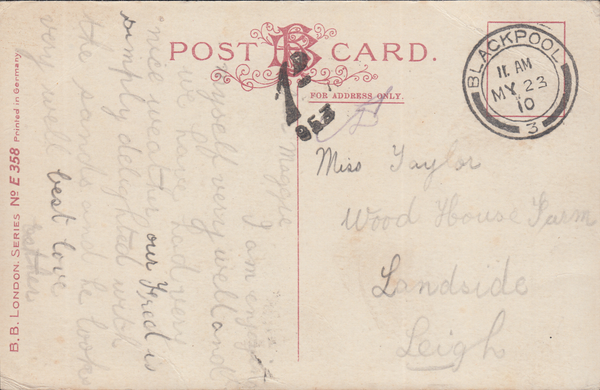 POST CARD.
FOR ADDRESS ONLY.
BLACKPOOL
11. AM
MY 23
10
3
1D
953
Miss Taylor
Wood House Farm
Landside
Leigh
Maggie
I am enjoying
myself very well and
we have had very
nice weather our Fred is
simply delighted with
the sands and he looks
very well best love
B. B. LONDON. SERIES No E 358 Printed in Germany